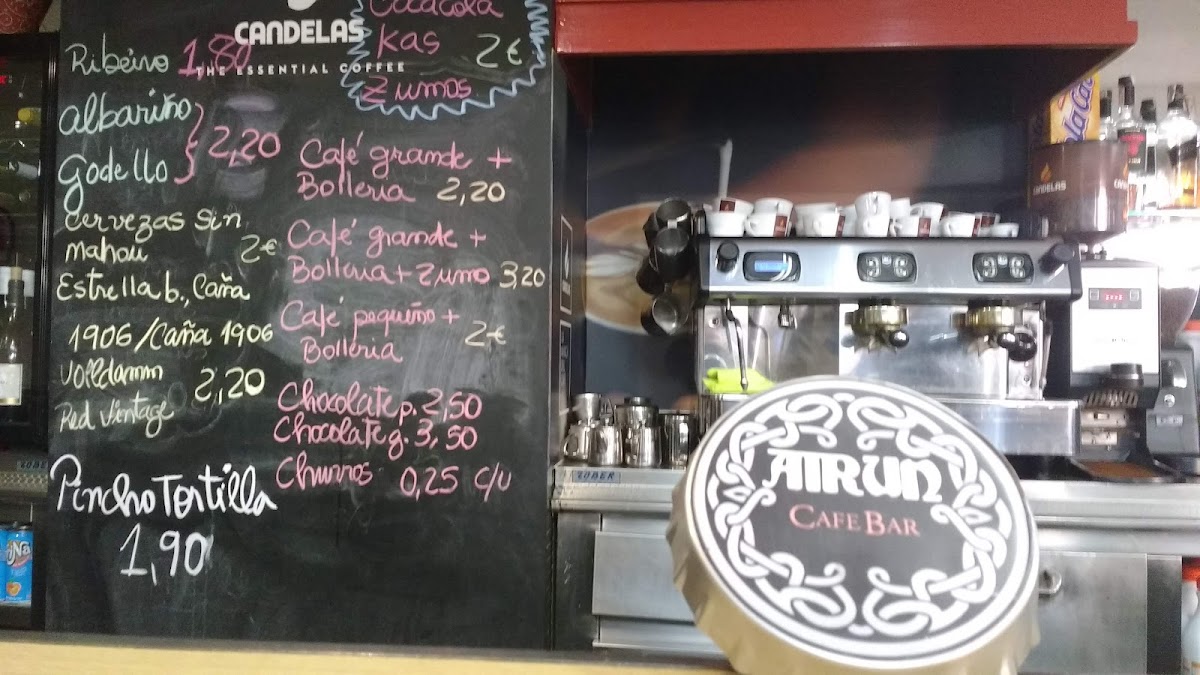 CANDELAS
THE ESSENTIAL COFFEE
Ribeiro 1,80
albariño
Godello 2,20
cervezas sin
mahou 2€
Estrella b., Caña
1906/Caña 1906
Volldamm 2,20
Red Vintage
Pincho Tortilla
1,90
Cocacola
Kas 2€
Zumos
Café grande +
Bolleria 2,20
Café grande +
Bolleria + Zumo 3,20
Café pequeño +
Bolleria 2€
Chocolate p. 2,50
Chocolate g. 3,50
Churros 0,25 c/u
ZUBER
ATRUN
CAFE BAR
CANDELAS